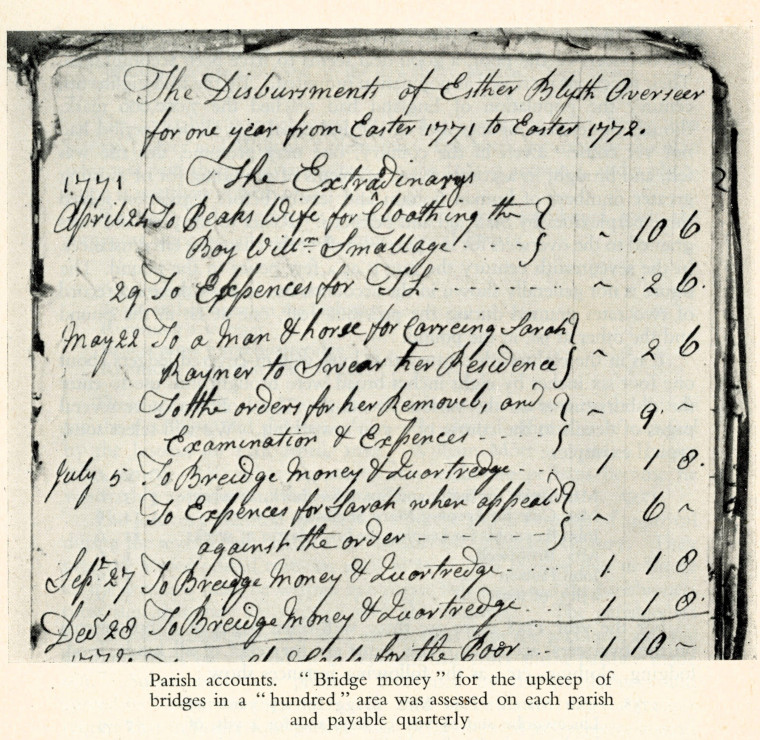 The Disbursments of Esther Blyth Overseer
for one year from Easter 1771 to Easter 1772.
1771 The Extradinarys
April 24 To Beaks Wife for Cloathing the
Boy Willm Smallage - 10 6
29 To Expences for T L - 2 6.
May 22 To a Man & horse for Carreing Sarah
Rayner to Swear her Residence - 2 6
To the orders for her Removel, and
Examination & Expences - 9 -
July 5 To Breidge Money & Quortredge 1 1 8.
To Expences for Sarah when appeald
against the order - 6 -
Sept 27 To Breidge Money & Quortredge 1 1 8
Decr 28 To Breidge Money & Quortredge 1 1 8.
for the Poor 1 10 -
Parish accounts. "Bridge money" for the upkeep of
bridges in a "hundred" area was assessed on each parish
and payable quarterly